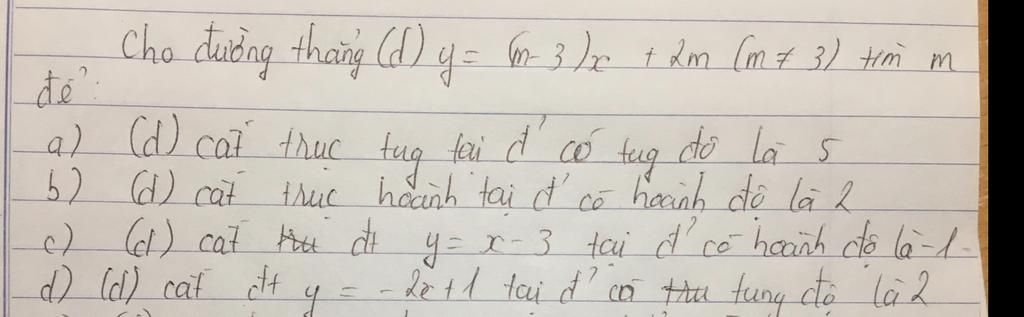 Cho đường thẳng (d) y = (m-3)x + 2m (m ≠ 3) tìm m
để:
a) (d) cắt trục tug tại đ' có tug độ là 5
b) (d) cắt trục hoành tại đ' có hoành độ là 2
c) (d) cắt đt y = x - 3 tại đ' có hoành độ là -1
d) (d) cắt đt y = -2x + 1 tại đ' có tung độ là 2